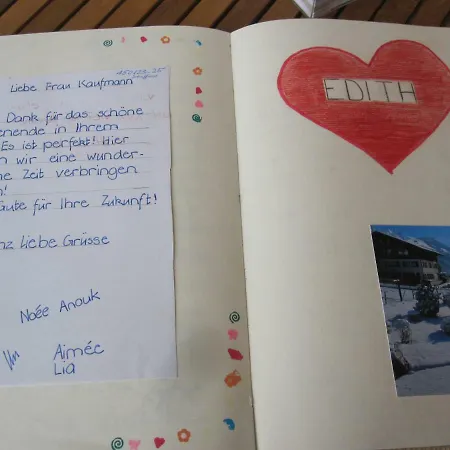 Liebe Frau Kaufmann
Dank für das schöne
enende in Ihrem
Es ist perfekt! Hier
n wir eine wunder-
ne Zeit verbringen
n!
ute für Ihre Zukunft!
nz Liebe Grüsse
Noée Anouk
Aimée
Lia
EDITH